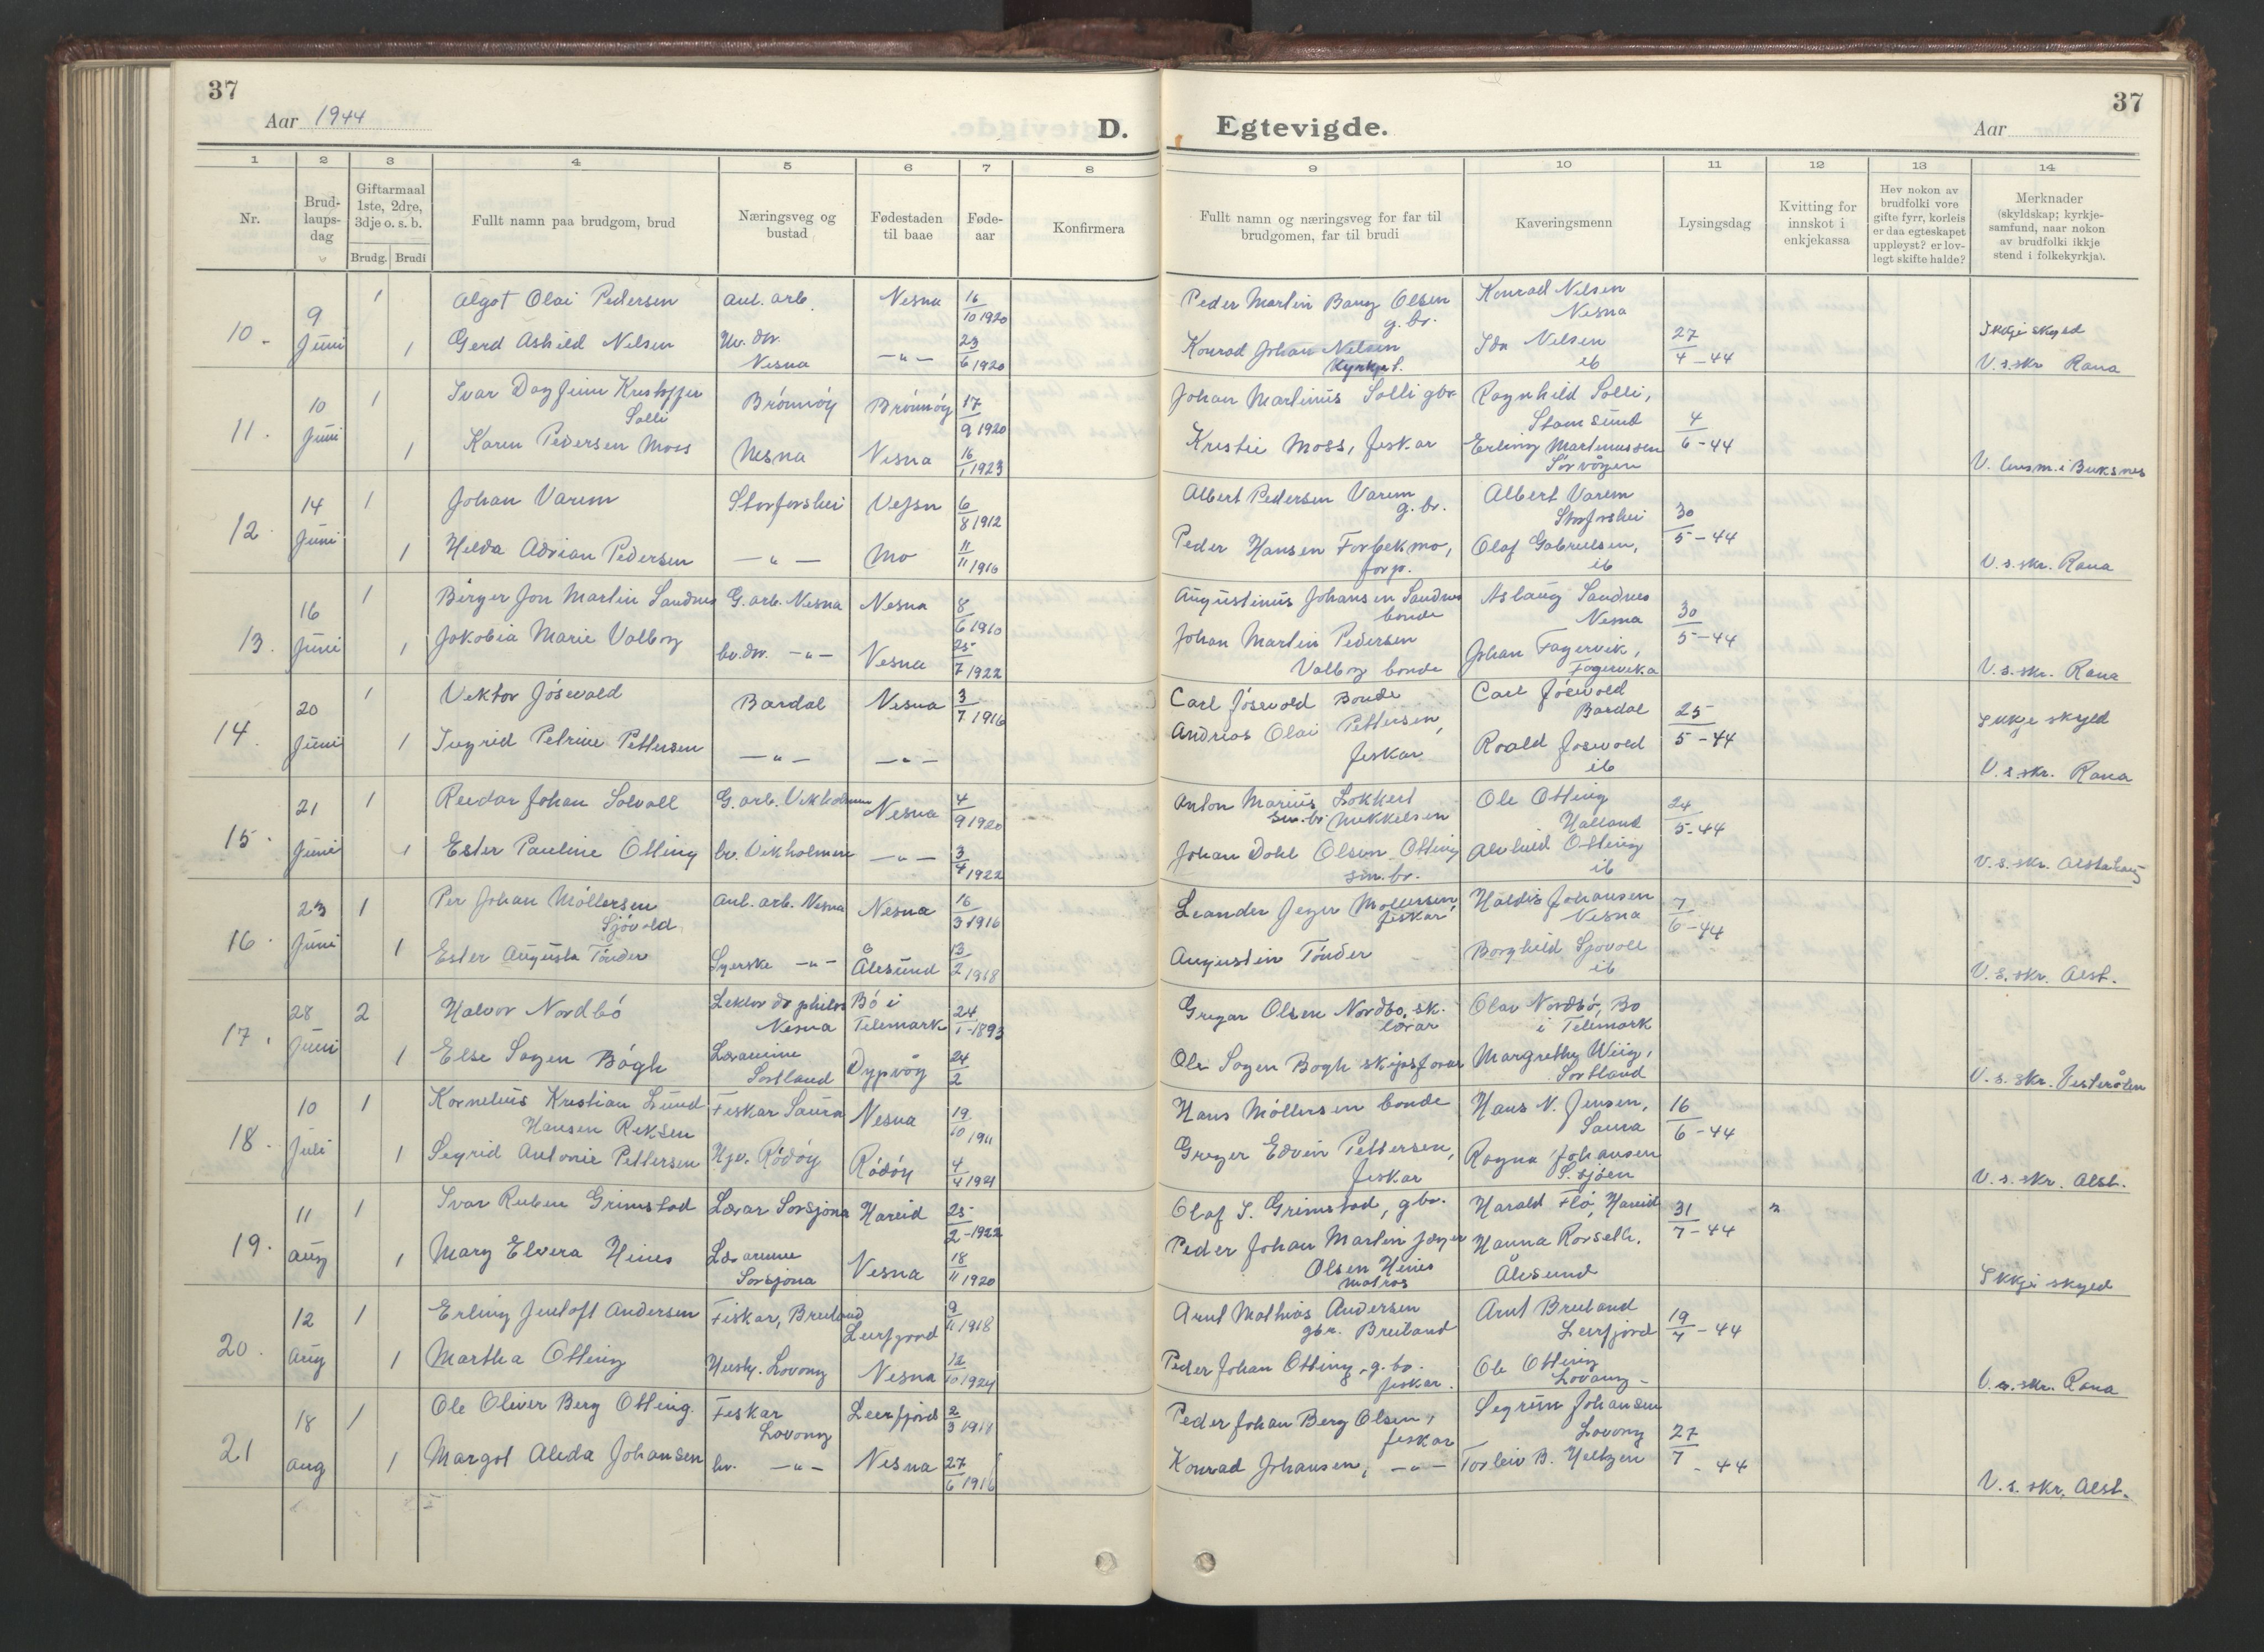 37
Aar 1944
D.
Egtevigde.
Aar
37
1 2 3 4 5 6 7 8 9 10 11 12 13 14
Nr.
Brud-
laups-
dag
Giftarmaal
1ste, 2dre,
3dje o. s. b.
Brudg. Brudi
Fullt namn paa brudgom, brud
Næringsveg og
bustad
Fødestaden
til baae
Føde-
aar
Konfirmera
Fullt namn og næringsveg for far til
brudgomen, far til brudi
Kaveringsmenn
Lysingsdag
Kvitting for
innskot i
enkjekassa
Hev nokon av
brudfolki vore
gifte fyrr, korleis
er daa egteskapet
uppløyst? er lov-
legt skifte halde?
Merknader
(skyldskap; kyrkje-
samfund, naar nokon
av brudfolki ikkje
stend i folkekyrkja).
10. 9 Juni
1 Algot Olai Pedersen Anl. arb. Nesna 16/10 1920 Peder Martin Bang Olsen g. br. Konrad Nelsen Nesna
1 Gerd Ashild Nelsen Hv. dtr. Nesna -"- 23/6 1920 Konrad Johan Nelsen Kyrkjet. Ida Nelsen ib 27/4-44 Ikkje skyld V. s. skr Rana
11. 10 Juni
1 Ivar Dagfinn Kristoffer Solli Brónnóy Brónnóy 17/9 1920 Johan Martinus Solli gbr Ragnhild Solli, Stamsund
1 Karen Pedersen Moss Nesna Nesna 16/1 1923 Kristie Moss, fiskar Erling Martinussen Sørvågen 4/6-44 V. lensm. i Buksnes
12. 14 Juni
1 Johan Varem Storforshei Vefsn 6/8 1912 Albert Pedersen Varem g. br. Albert Varem Storforshei
1 Hilda Adrian Pedersen -"- Mo 11/11 1916 Peder Hansen Forbekmo, forp. Olaf Gabrielsen, ib 30/5-44 V. s. skr. Rana
13. 16 Juni
1 Birger Jon Martin Sandnes G. arb. Nesna Nesna 8/6 1910 Augustinus Johansen Sandnes bonde Aslaug Sandnes Nesna
1 Jakobia Marie Valberg hv. dtr. -"- Nesna 25/7 1922 Johan Martin Pedersen Valberg bonde Johan Fagervik, Fagervika 30/5-44 V. s. skr. Rana
14. 20 Juni
1 Viktor Jósevold Bardal Nesna 3/7 1916 Carl Jósevold Bonde Carl Jósevold Bardal
1 Ingrid Petrine Pettersen -"- -"- Andreas Olai Pettersen, fiskar Roald Josevold ib 25/5-44 Ikkje skyld V. s. skr. Rana
15. 21 Juni
1 Reidar Johan Solvoll G. arb. Vikholmen Nesna 4/9 1920 Anton Marius Lokkert Mikkelsen sm. br. Ole Otting Halland
1 Ester Pauline Otting hv. Vikholmen -"- 3/4 1922 Johan Dahl Olsen Otting sm. br. Alvhild Otting ib 24/5-44 V. s. skr. Alstahaug
16. 23 Juni
1 Per Johan Móllersen Sjóvold Anl. arb. Nesna Nesna 16/3 1916 Leander Jeger Mollersen fiskar Haldis Johansen Nesna
1 Ester Augusta Tónder Syerske -"- Ålesund 13/2 1918 Augustin Tónder Borghild Sjovoll ib 7/6-44 V. s. skr. Alst.
17. 28 Juni
2 Halvor Nordbó Lektor dr philos Nesna Bó i Telemark 24/1-1893 Gregar Olsen Nordbo, sk. lærar Olav Nordbó, Bo i Telemark
1 Else Sagen Bógh Lærarinne Sortland Dypvåg 24/2 Ole Sagen Bogh skipsførar Margrethe Wiig, Sortland V. s. skr. Vesterålen
18. 10 Juli
1 Kornelius Kristian Lund Hansen Reksen Fiskar Saura Nesna 19/10 1911 Hans Móllersen bonde Hans N. Jensen, Saura
1 Sigrid Antonie Pettersen Hjv. Ródóy Ródóy 4/4 1921 Greger Edvin Pettersen, fiskar Ragna Johansen S. sjöen 16/6-44 V. s. skr. Alst.
19. 11 Aug
1 Ivar Ruben Grimstad Lærar Sorsjona Hareid 25/2-1922 Olaf I. Grimstad, gbr. Harald Fló, Hareid
1 Mary Elvera Hines Lærarinne Sorsjona Nesna 18/11 1920 Peder Johan Martin Jæger Olsen Hines matros Hanna Rorseth. Ålesund 31/7-44 Ikkje skyld
20. 12 Aug
1 Erling Jentoft Andersen Fiskar, Breiland Leirfjord 9/11 1918 Arnt Mathias Andersen gbr. Breiland Arnt Breiland Leirfjord
1 Martha Otting Hush. Lovong Nesna 12/10 1924 Peder Johan Otting, g. br. fiskar. Ole Otting Lovong 19/7-44 V. s. skr. Rana
21 18 aug
1 Ole Oliver Berg Otting Fiskar Lovong Leirfjord 2/3 1911 Peder Johan Berg Olsen, fiskar Sigrun Johansen Lovong
1 Margot Alida Johansen hv. -"- Nesna 27/6 1916 Konrad Johansen, -"- Torleiv B. Heltzen 27/7-44 V. s. skr. Alst.